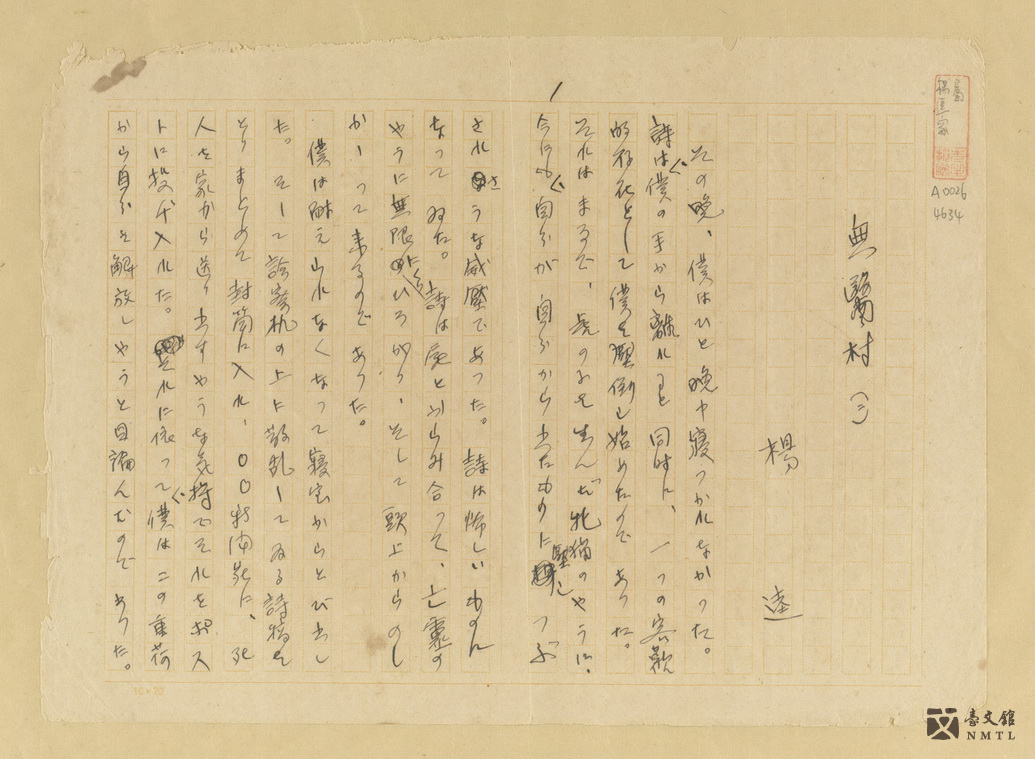 無醫村(三)
楊 逵
その晩、僕はひと晩中寝つかれなかった。
詩は僕の手から離れると同時に、一つの客観
的存在として僕を壓倒し始めたので あった。
それはまるで、虎の子を生んだ牝猫のやうに、
今にも自分が自分から出たものに壓しつぶ
されさうな威壓であった。詩は怖しいものに
なって ゐた。詩は死とからみ合って、亡霊の
やうに無限にひろがり、そして 頭上からのし
かゝって来るので あった。
僕は耐え切れなくなって寝室からとび出し
た。そして診察机の上に散乱してゐる詩稿を
とりまとめて封筒に入れ、〇〇新聞宛に、死
人を家から送り出すやうな気持でそれをポス
トに投げ入れた。それに依って僕はこの重荷
から自分を解放しやうと目論んだので あった。
10×20
A0026
4634
臺文館
NMTL